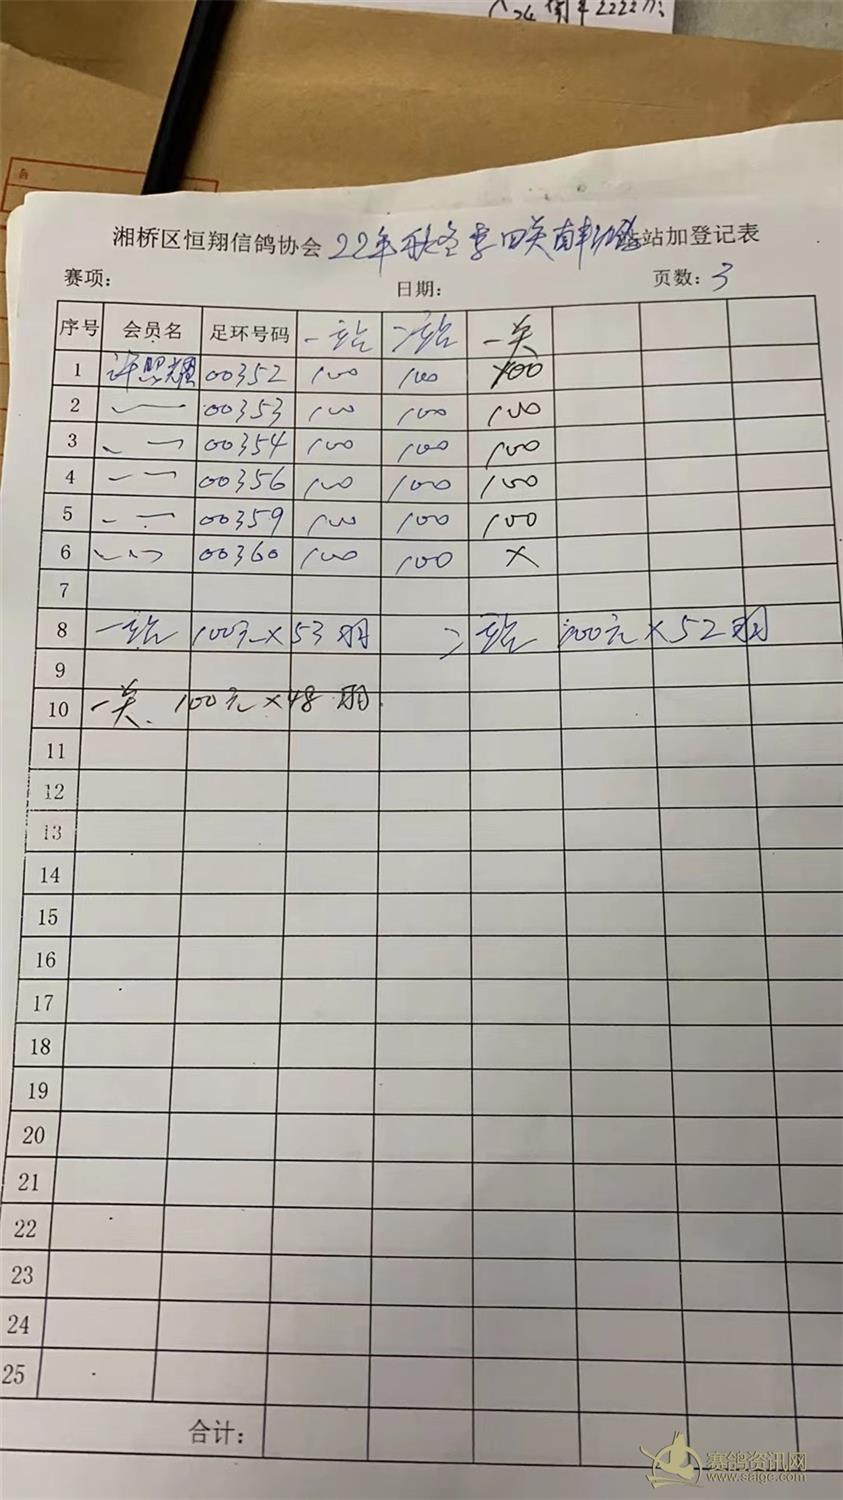 湘桥区恒翔信鸽协会22年秋冬季四关南丰站加登记表
赛项: 日期: 页数: 3
序号 会员名 足环号码 一站 二站 一关
1 许照耀 00352 100 100 100
2 〃 00353 100 100 100
3 〃 00354 100 100 100
4 〃 00356 100 100 100
5 〃 00359 100 100 100
6 〃 00360 100 100 ×
7
8 一站 100元×53羽 二站 100元×52羽
9
10 一关. 100元×48羽.
11
12
13
14
15
16
17
18
19
20
21
22
23
24
25
合计:
赛鸽资讯网
www.saige.com